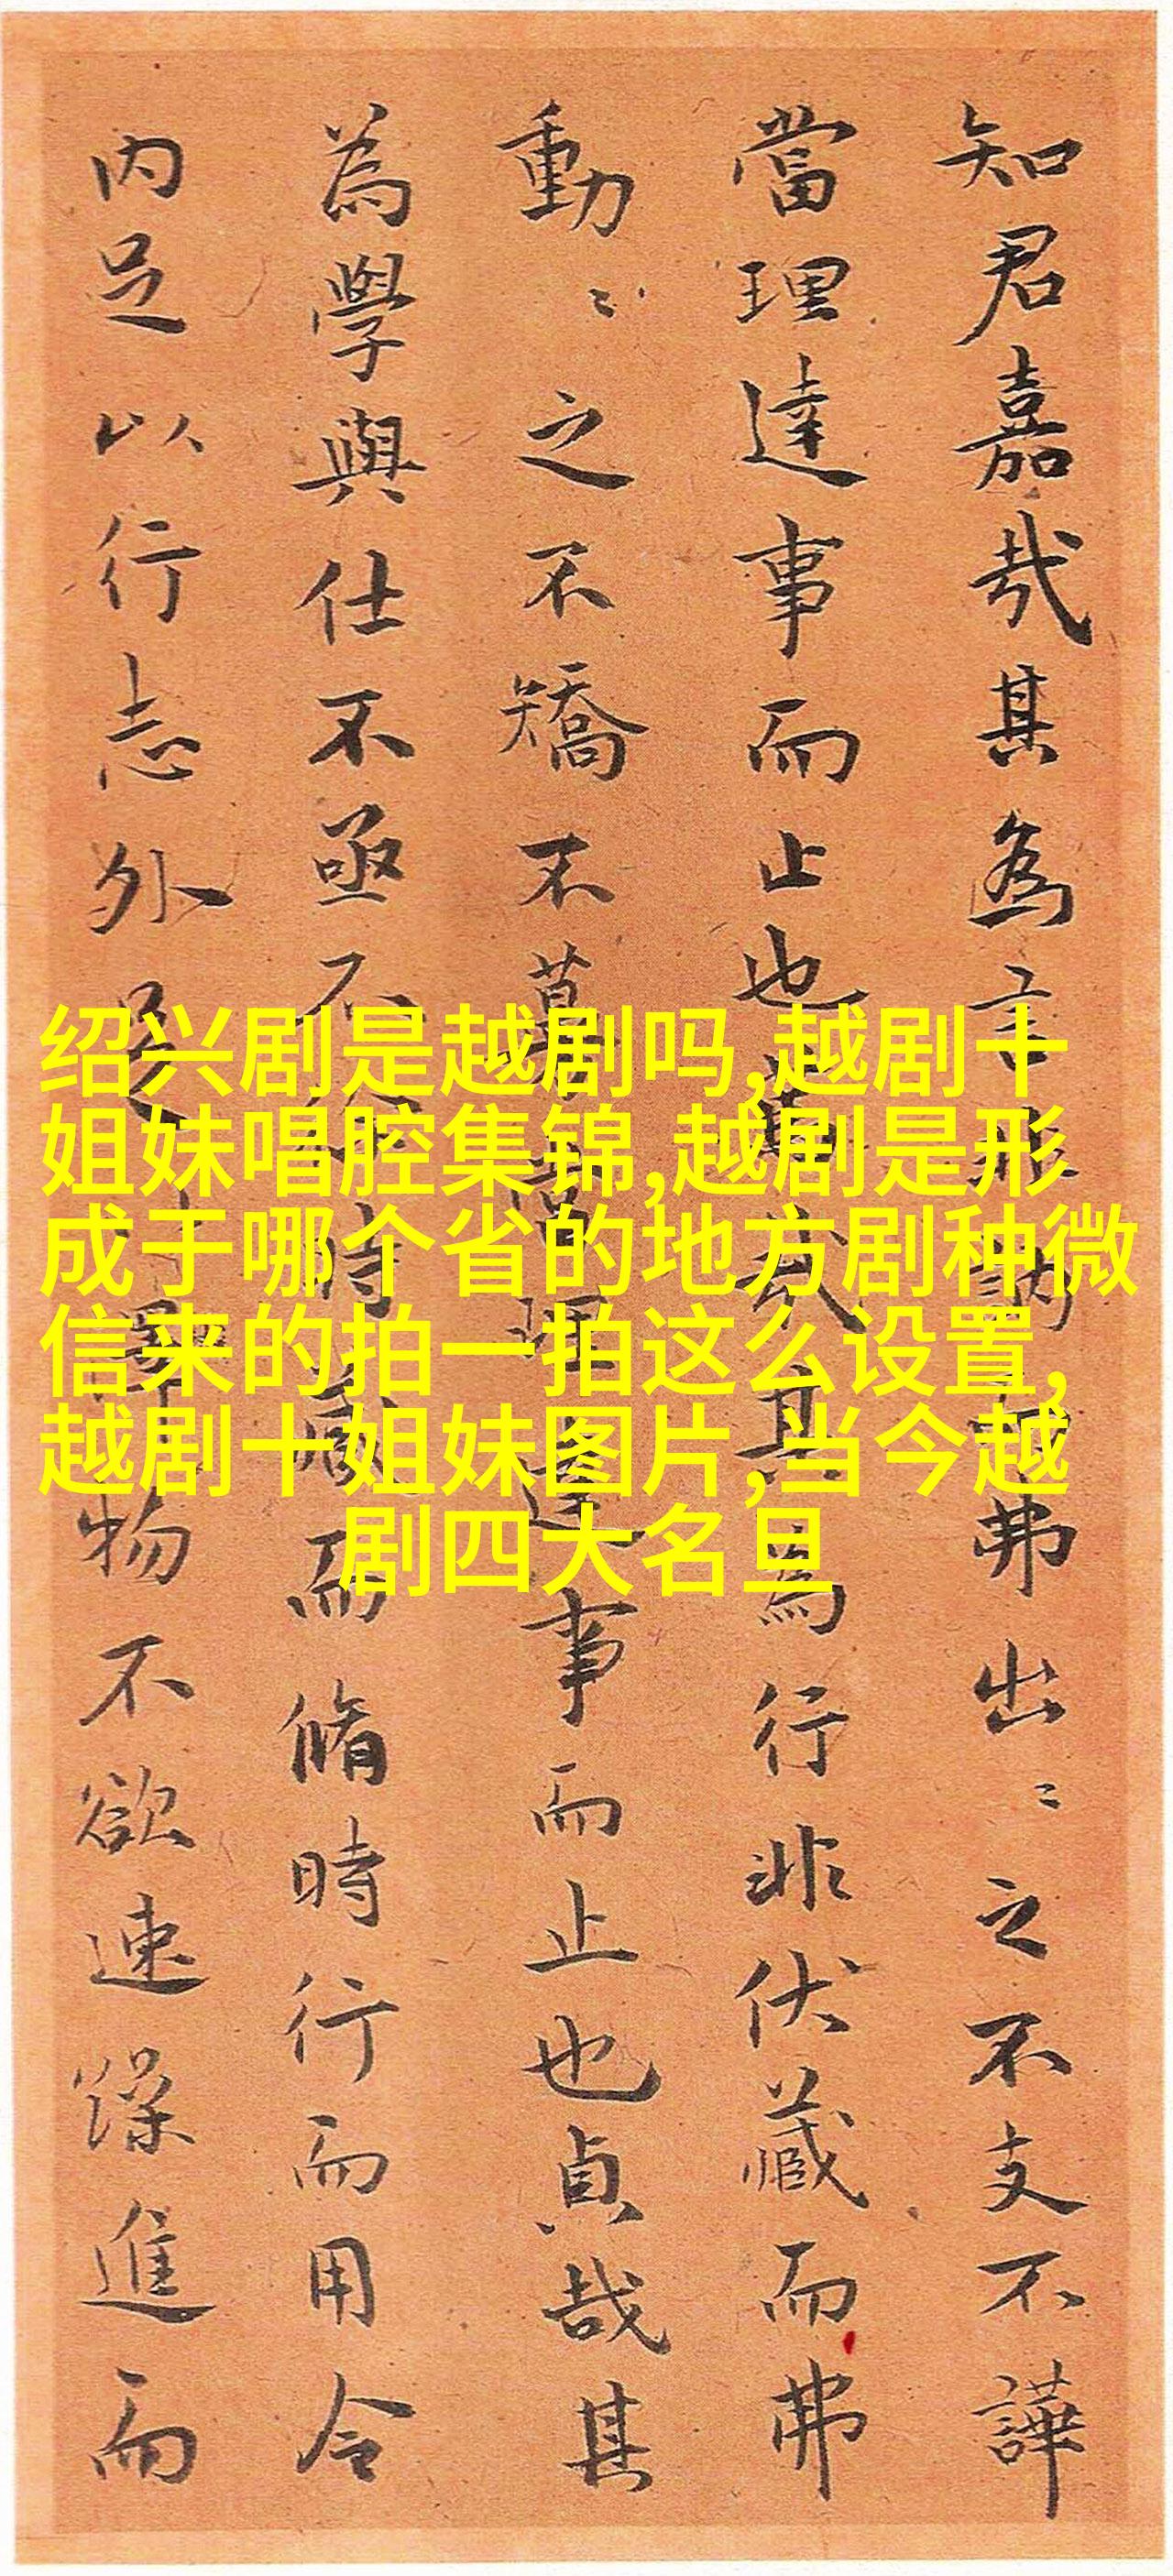 知君嘉哉其為言非訥而弗出〻之不支不譁
當理達事而止也哉其為行非伏藏而弗
動〻之不矯不慕當理達事而止也貞哉其
為學與仕不亟不時藏而脩時行而用令
内足以行志外足物不欲速躁進而
绍兴剧是越剧吗,越剧十
姐妹唱腔集锦,越剧是形
成于哪个省的地方剧种微
信来的拍一拍这么设置,
越剧十姐妹图片,当今越
剧四大名旦